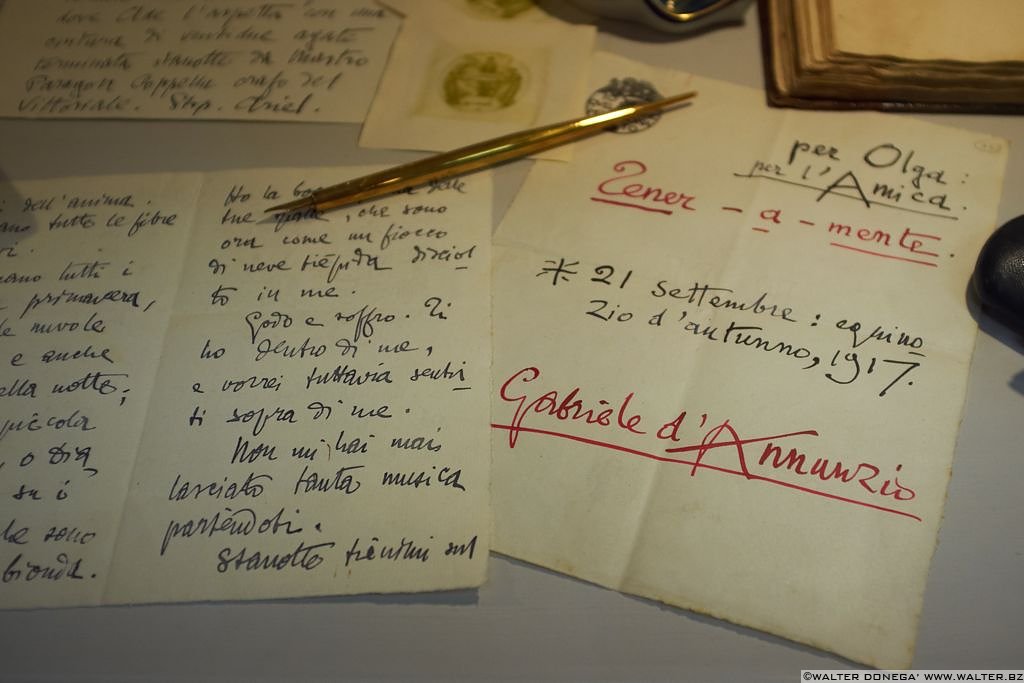 dove Che l'aspetta con una
cintura di ventidue agate
terminata stanotte da Maestro
Paragon Coppella orafo del
Vittoriale. Stop. Ariel.
dell'anima.
tutte le fibre
tutti i
primavera,
nuvole
e anche
notte;
piccola
o dia
su i
sono
bionda.
Ho la delle
tue, che sono
ora come un fiocco
di neve tiepida disciol
to in me.
Godo e soffro. Ti
ho dentro di me,
e vorrei tuttavia senti
ti sopra di me.
Non mi hai mai
lasciato tanta musica
partendoti.
Stanotte tienimi sul
per Olga:
per l'Amica.
Tener - a - mente.
* 21 settembre: equino
zio d'autunno, 1917.
Gabriele d'Annunzio
©WALTER DONEGA' WWW.WALTER.BZ